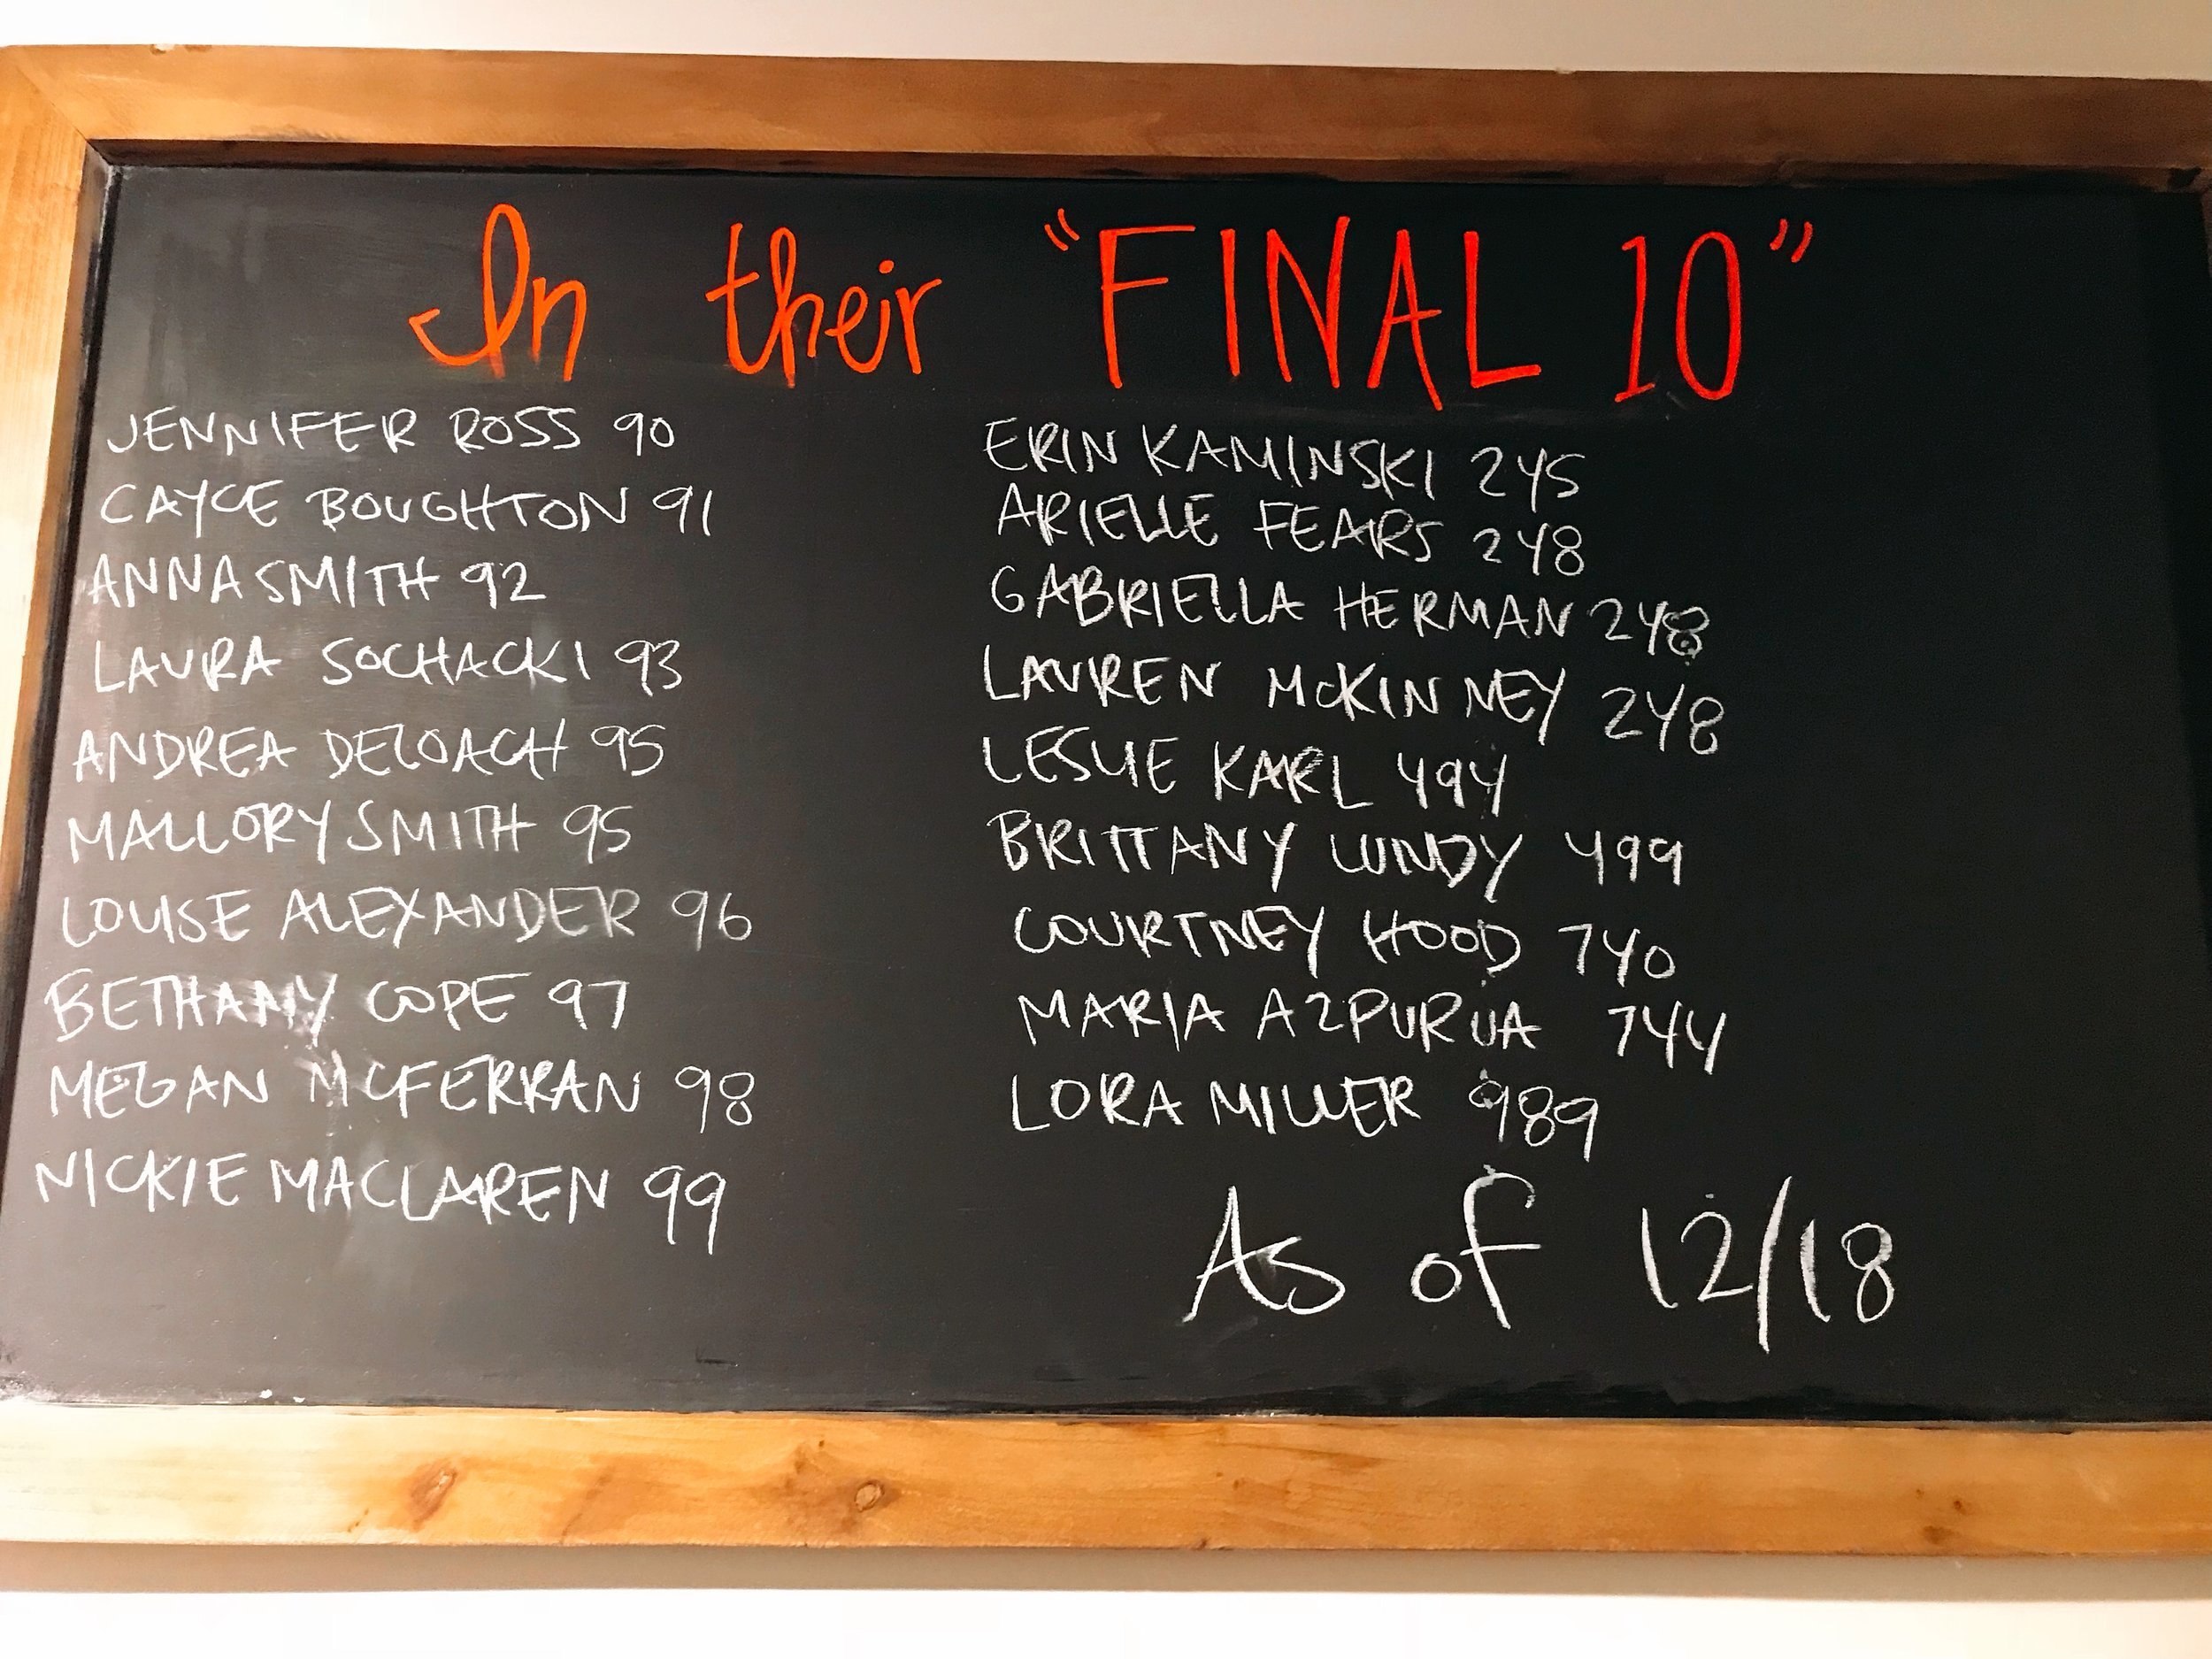 In their "FINAL 10"
JENNIFER ROSS 90
CAYCE BOUGHTON 91
ANNA SMITH 92
LAURA SOCHACKI 93
ANDREA DELOACH 95
MALLORY SMITH 95
LOUISE ALEXANDER 96
BETHANY COPE 97
MEGAN MCFERRAN 98
NICKIE MACLAREN 99
ERIN KAMINSKI 245
ARIELLE FEARS 248
GABRIELLA HERMAN 248
LAUREN MCKINNEY 248
LESLIE KARL 494
BRITTANY LUNDY 499
COURTNEY HOOD 740
MARIA AZPURUA 744
LORA MILLER 989
As of 12/18